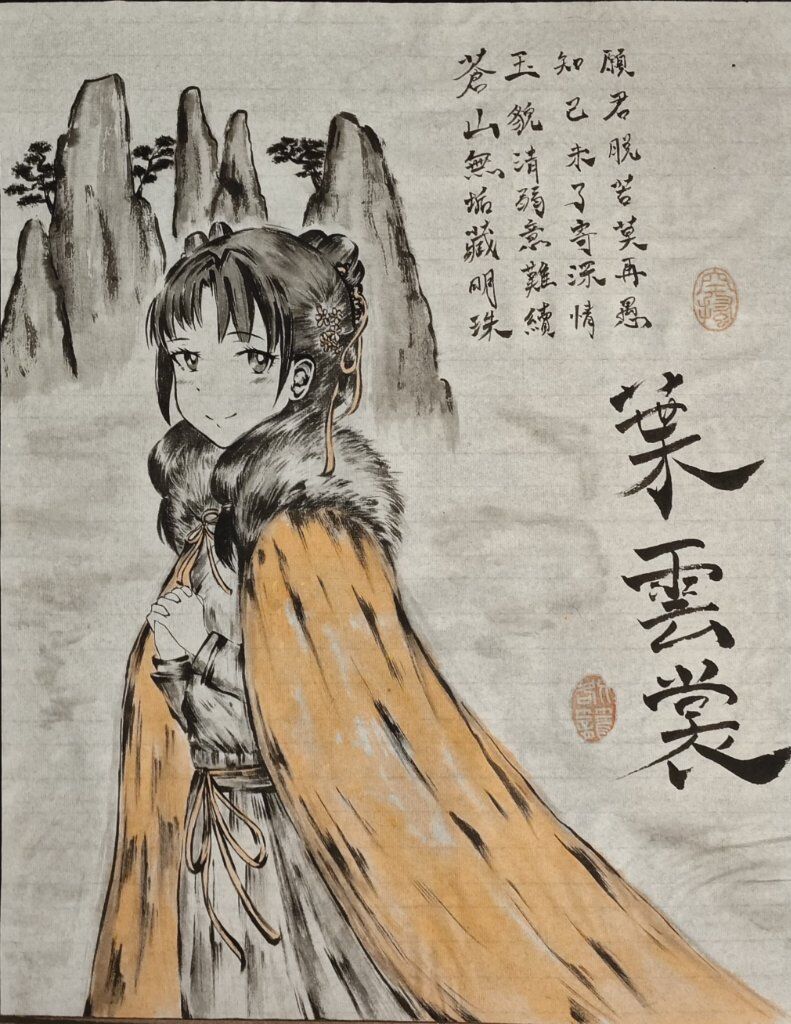 蒼山無垢藏明珠
玉貌清弱意難續
知己未了寄深情
願君脫苦莫再愚
葉雲裳